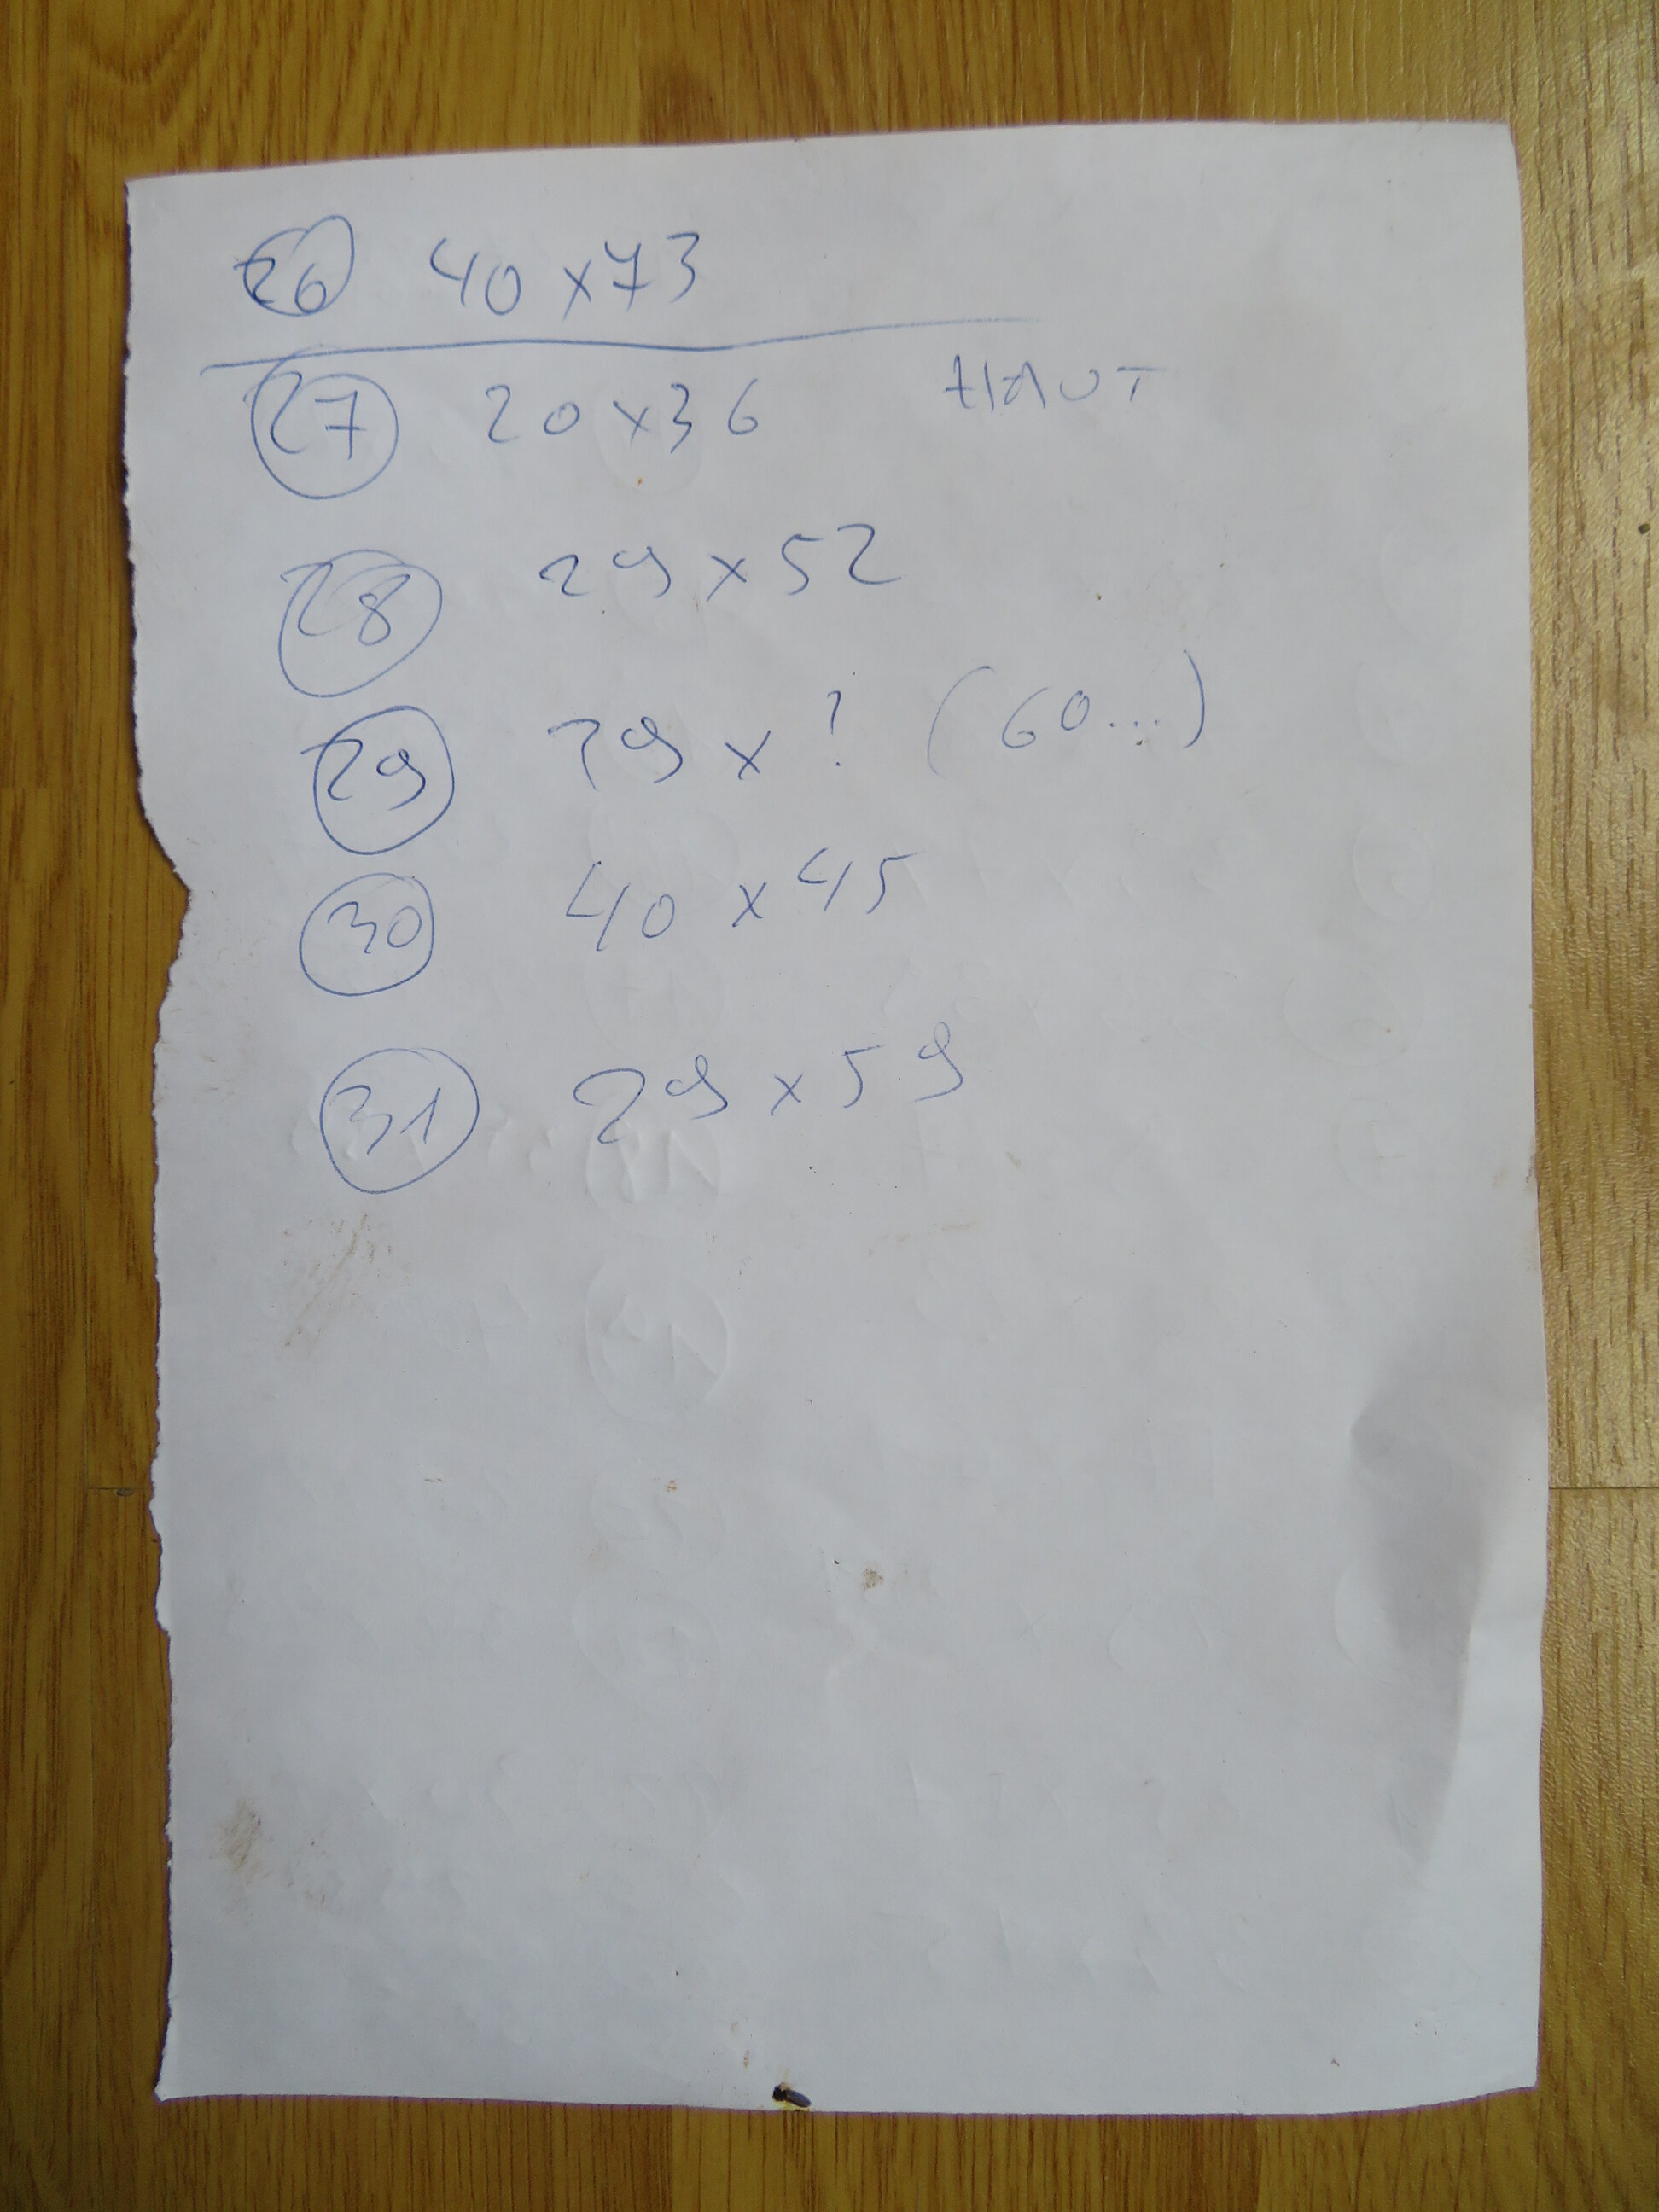 26 40 x 73
27 20 x 36 HAUT
28 29 x 52
29 29 x ? (60...)
30 40 x 45
31 29 x 59